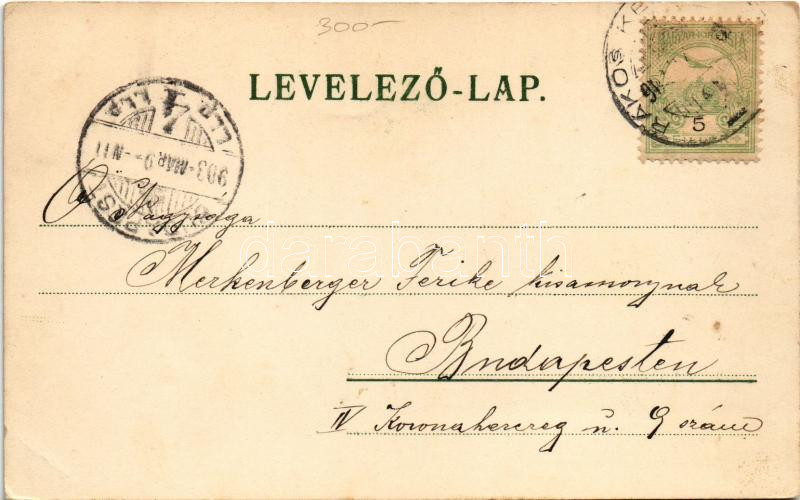 300-
LEVELEZŐ-LAP.
RÁKOS
5
903-MÁR 9-N11
Ő Nagysága
Merkenberger Ferike kisasszonynak
Budapesten
IV Koronaherceg u. 9 szám
darabanth